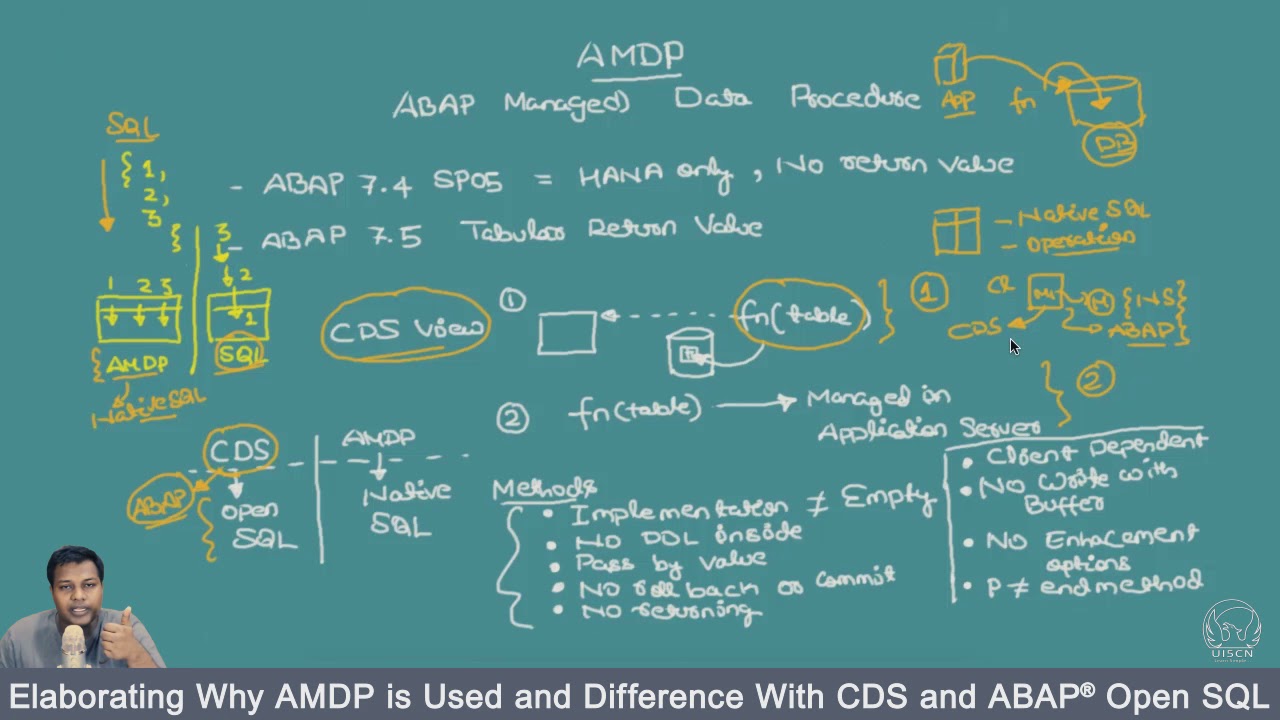 AMDP
ABAP Managed Data Procedure
App fn
DB
SQL
{ 1,
2,
3
}
- ABAP 7.4 SP05 = HANA only, No return value
- ABAP 7.5 Tabular Return Value
- Native SQL
- Operation
3
2
1
SQL
1 2 3
{ AMDP
Native SQL
CDS View
① fn(table) } ①
{NS}
CDS ABAP }
② fn(table) → Managed in
Application Server
} ②
CDS
ABAP
Open
SQL
AMDP
Native
SQL
Methods
• Implementation ≠ Empty
• NO DDL inside
• Pass by value
• NO roll back or Commit
• NO returning
• Client Dependent
• No Write with
Buffer
• NO Enhacement
options
• P ≠ endmethod
UISCN
Learn Simple
Elaborating Why AMDP is Used and Difference With CDS and ABAP® Open SQL